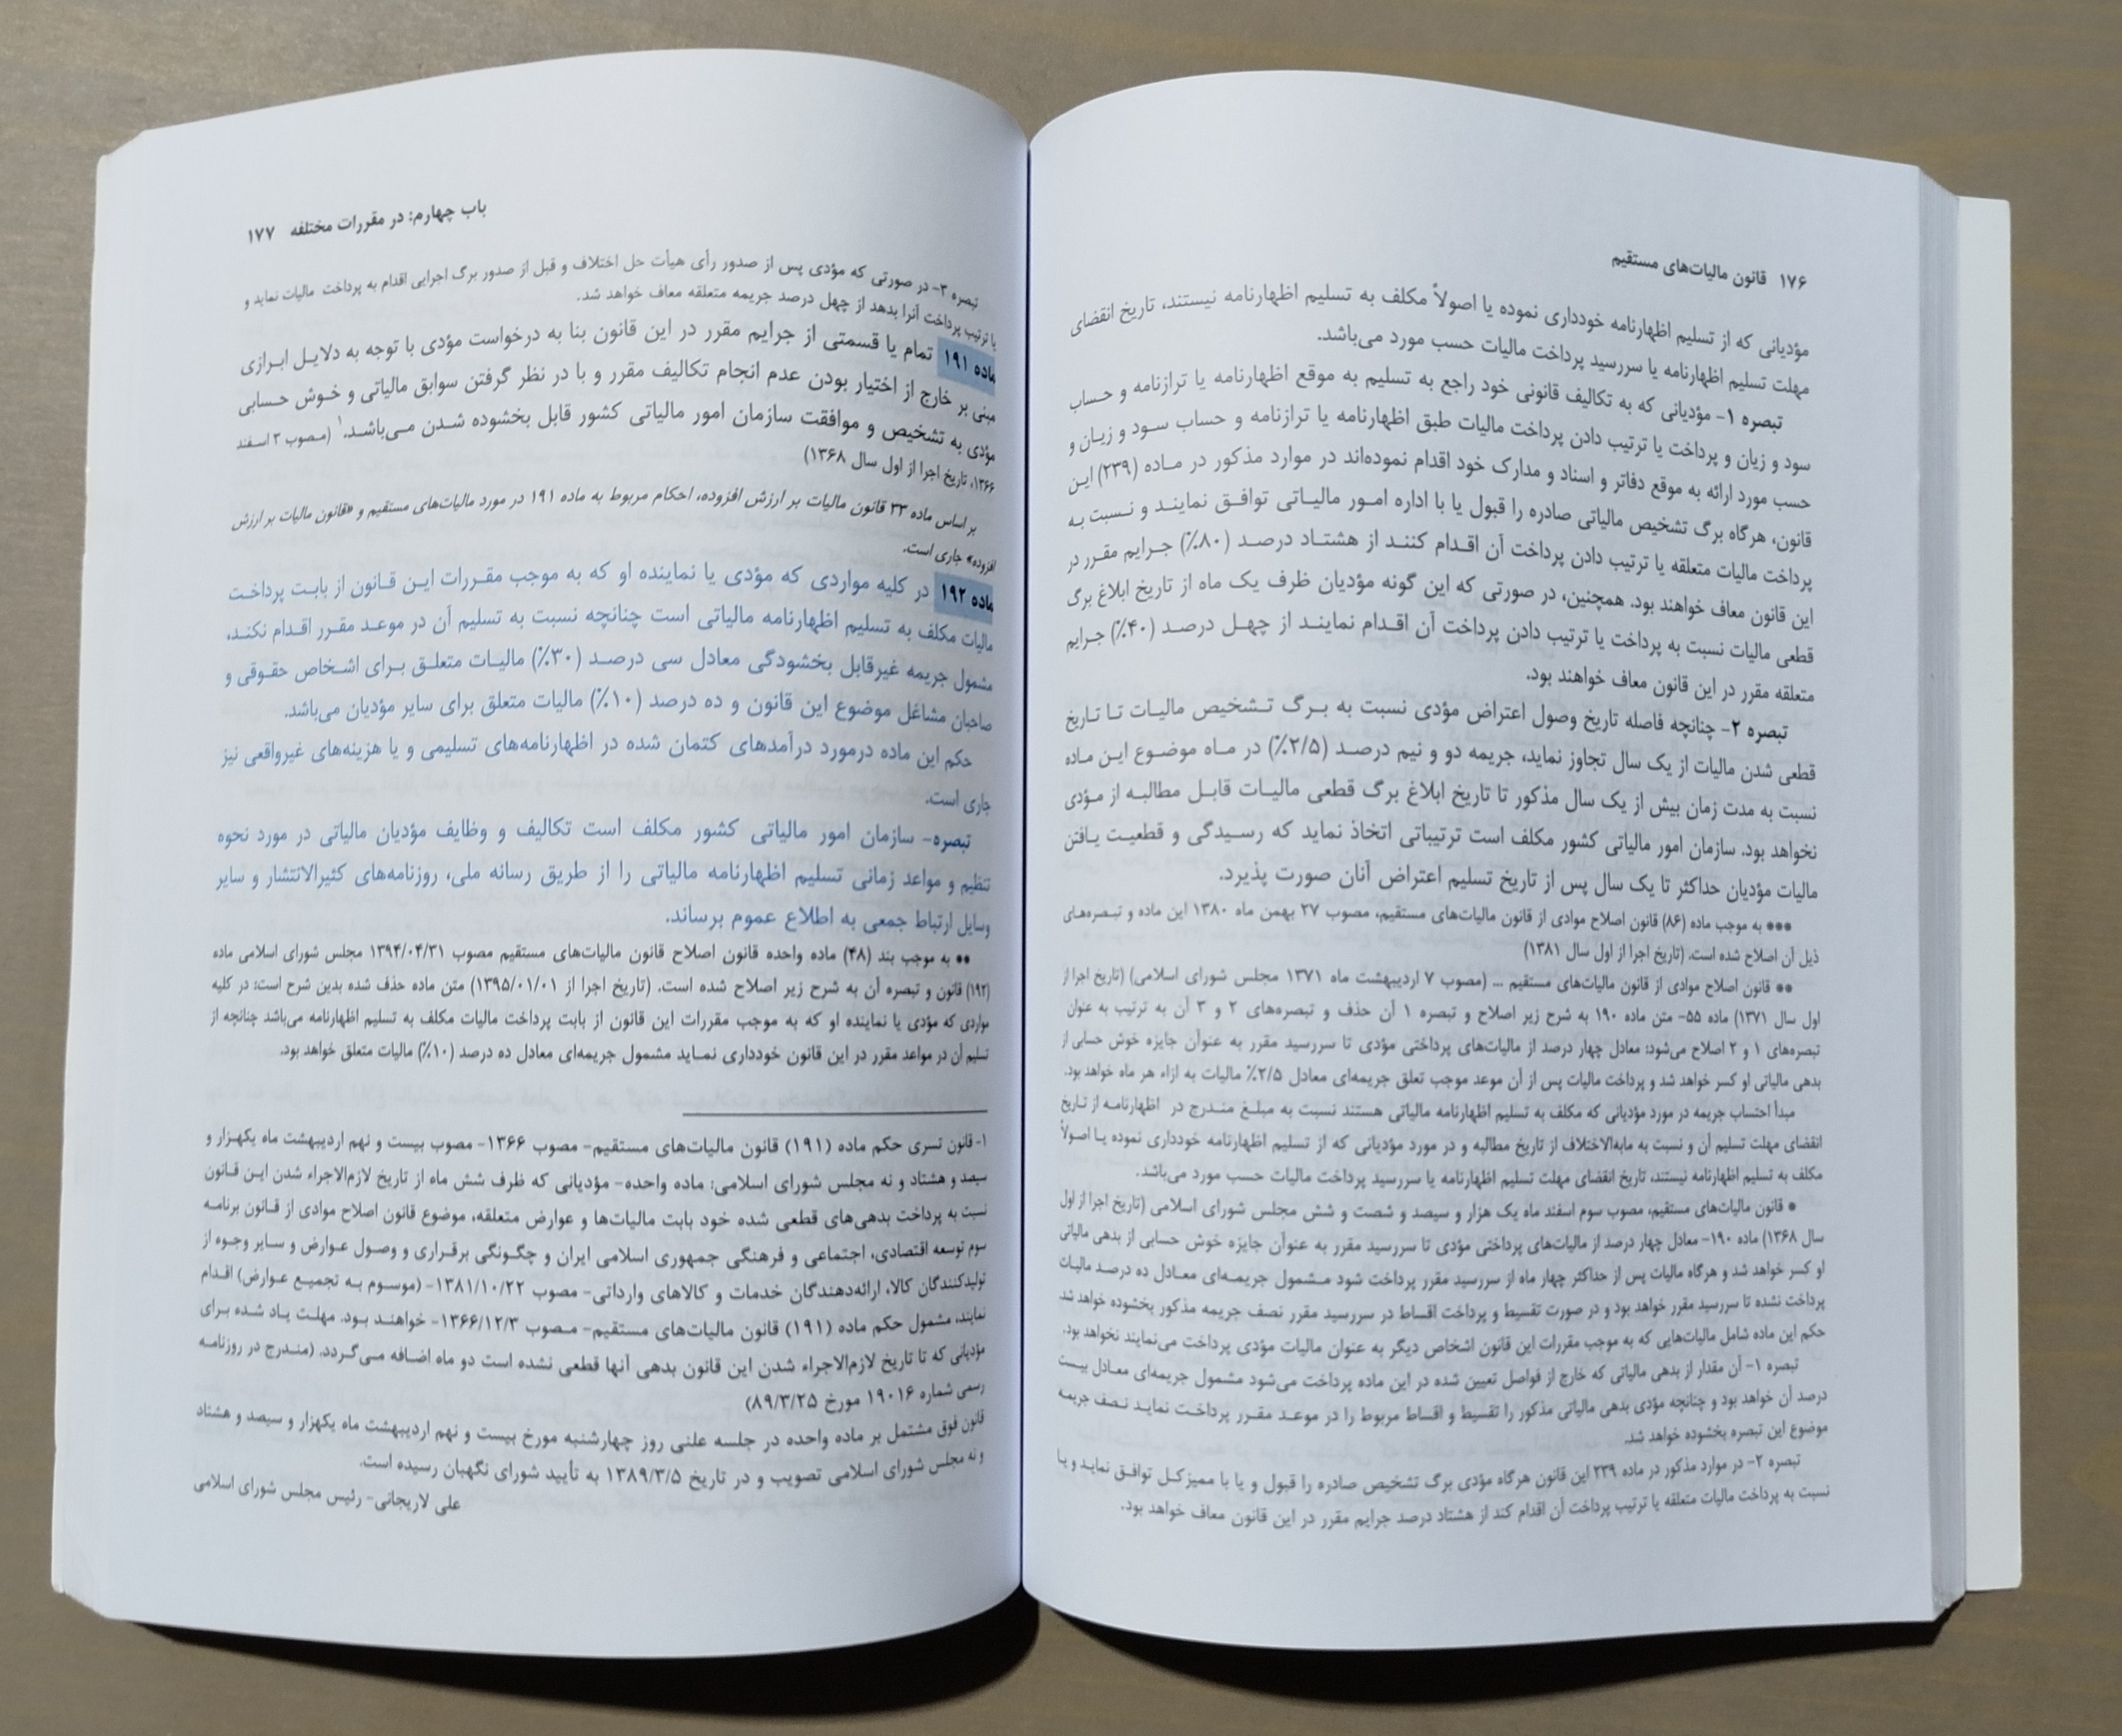 ۱۷۶ قانون مالیات‌های مستقیم
مؤدیانی که از تسلیم اظهارنامه خودداری نموده یا اصولاً مکلف به تسلیم اظهارنامه نیستند، تاریخ انقضای
مهلت تسلیم اظهارنامه یا سررسید پرداخت مالیات حسب مورد می‌باشد.
تبصره ۱- مؤدیانی که به تکالیف قانونی خود راجع به تسلیم به موقع اظهارنامه یا ترازنامه و حساب
سود و زیان و پرداخت یا ترتیب دادن پرداخت مالیات طبق اظهارنامه یا ترازنامه و حساب سود و زیان و
حسب مورد ارائه به موقع دفاتر و اسناد و مدارک خود اقدام نموده‌اند در موارد مذکور در ماده (۲۳۹) این
قانون، هرگاه برگ تشخیص مالیاتی صادره را قبول یا با اداره امور مالیاتی توافق نمایند و نسبت به
پرداخت مالیات متعلقه یا ترتیب دادن پرداخت آن اقدام کنند از هشتاد درصد (۸۰٪) جرایم مقرر در
این قانون معاف خواهند بود. همچنین، در صورتی که این گونه مؤدیان ظرف یک ماه از تاریخ ابلاغ برگ
قطعی مالیات نسبت به پرداخت یا ترتیب دادن پرداخت آن اقدام نمایند از چهل درصد (۴۰٪) جرایم
متعلقه مقرر در این قانون معاف خواهند بود.
تبصره ۲- چنانچه فاصله تاریخ وصول اعتراض مؤدی نسبت به برگ تشخیص مالیات تا تاریخ
قطعی شدن مالیات از یک سال تجاوز نماید، جریمه دو و نیم درصد (۲/۵٪) در ماه موضوع این ماده
نسبت به مدت زمان بیش از یک سال مذکور تا تاریخ ابلاغ برگ قطعی مالیات قابل مطالبه از مؤدی
نخواهد بود. سازمان امور مالیاتی کشور مکلف است ترتیباتی اتخاذ نماید که رسیدگی و قطعیت یافتن
مالیات مؤدیان حداکثر تا یک سال پس از تاریخ تسلیم اعتراض آنان صورت پذیرد.
*** به موجب ماده (۸۶) قانون اصلاح موادی از قانون مالیات‌های مستقیم، مصوب ۲۷ بهمن ماه ۱۳۸۰ این ماده و تبصره‌های
ذیل آن اصلاح شده است. (تاریخ اجرا از اول سال ۱۳۸۱)
** قانون اصلاح موادی از قانون مالیات‌های مستقیم ... (مصوب ۷ اردیبهشت ماه ۱۳۷۱ مجلس شورای اسلامی) (تاریخ اجرا از
اول سال ۱۳۷۱) ماده ۵۵- متن ماده ۱۹۰ به شرح زیر اصلاح و تبصره ۱ آن حذف و تبصره‌های ۲ و ۳ آن به ترتیب به عنوان
تبصره‌های ۱ و ۲ اصلاح می‌شود: معادل چهار درصد از مالیات‌های پرداختی مؤدی تا سررسید مقرر به عنوان جایزه خوش حسابی از
بدهی مالیاتی او کسر خواهد شد و پرداخت مالیات پس از آن موعد موجب تعلق جریمه‌ای معادل ۲/۵٪ مالیات به ازاء هر ماه خواهد بود.
مبدأ احتساب جریمه در مورد مؤدیانی که مکلف به تسلیم اظهارنامه مالیاتی هستند نسبت به مبلغ مندرج در اظهارنامه از تاریخ
انقضای مهلت تسلیم آن و نسبت به مابه‌الاختلاف از تاریخ مطالبه و در مورد مؤدیانی که از تسلیم اظهارنامه خودداری نموده یا اصولاً
مکلف به تسلیم اظهارنامه نیستند، تاریخ انقضای مهلت تسلیم اظهارنامه یا سررسید پرداخت مالیات حسب مورد می‌باشد.
* قانون مالیات‌های مستقیم، مصوب سوم اسفند ماه یک هزار و سیصد و شصت و شش مجلس شورای اسلامی (تاریخ اجرا از اول
سال ۱۳۶۸) ماده ۱۹۰- معادل چهار درصد از مالیات‌های پرداختی مؤدی تا سررسید مقرر به عنوان جایزه خوش حسابی از بدهی مالیاتی
او کسر خواهد شد و هرگاه مالیات پس از حداکثر چهار ماه از سررسید مقرر پرداخت شود مشمول جریمه‌ای معادل ده درصد مالیات
پرداخت نشده تا سررسید مقرر خواهد بود و در صورت تقسیط و پرداخت اقساط در سررسید مقرر نصف جریمه مذکور بخشوده خواهد شد
حکم این ماده شامل مالیات‌هایی که به موجب مقررات این قانون اشخاص دیگر به عنوان مالیات مؤدی پرداخت می‌نمایند نخواهد بود.
تبصره ۱- آن مقدار از بدهی مالیاتی که خارج از فواصل تعیین شده در این ماده پرداخت می‌شود مشمول جریمه‌ای معادل بیست
درصد آن خواهد بود و چنانچه مؤدی بدهی مالیاتی مذکور را تقسیط و اقساط مربوط را در موعد مقرر پرداخت نماید نصف جریمه
موضوع این تبصره بخشوده خواهد شد.
تبصره ۲- در موارد مذکور در ماده ۲۳۹ این قانون هرگاه مؤدی برگ تشخیص صادره را قبول و یا با ممیزکل توافق نماید و یا
نسبت به پرداخت مالیات متعلقه یا ترتیب پرداخت آن اقدام کند از هشتاد درصد جرایم مقرر در این قانون معاف خواهد بود.
باب چهارم: در مقررات مختلفه ۱۷۷
تبصره ۳- در صورتی که مؤدی پس از صدور رأی هیأت حل اختلاف و قبل از صدور برگ اجرایی اقدام به پرداخت مالیات نماید و
یا ترتیب پرداخت آنرا بدهد از چهل درصد جریمه متعلقه معاف خواهد شد.
ماده ۱۹۱ تمام یا قسمتی از جرایم مقرر در این قانون بنا به درخواست مؤدی با توجه به دلایل ابرازی
مبنی بر خارج از اختیار بودن عدم انجام تکالیف مقرر و با در نظر گرفتن سوابق مالیاتی و خوش حسابی
مؤدی به تشخیص و موافقت سازمان امور مالیاتی کشور قابل بخشوده شدن می‌باشد.۱ (مصوب ۳ اسفند
۱۳۶۶، تاریخ اجرا از اول سال ۱۳۶۸)
بر اساس ماده ۳۳ قانون مالیات بر ارزش افزوده، احکام مربوط به ماده ۱۹۱ در مورد مالیات‌های مستقیم و «قانون مالیات بر ارزش
افزوده» جاری است.
ماده ۱۹۲ در کلیه مواردی که مؤدی یا نماینده او که به موجب مقررات این قانون از بابت پرداخت
مالیات مکلف به تسلیم اظهارنامه مالیاتی است چنانچه نسبت به تسلیم آن در موعد مقرر اقدام نکند،
مشمول جریمه غیرقابل بخشودگی معادل سی درصد (۳۰٪) مالیات متعلق برای اشخاص حقوقی و
صاحبان مشاغل موضوع این قانون و ده درصد (۱۰٪) مالیات متعلق برای سایر مؤدیان می‌باشد.
حکم این ماده درمورد درآمدهای کتمان شده در اظهارنامه‌های تسلیمی و یا هزینه‌های غیرواقعی نیز
جاری است.
تبصره- سازمان امور مالیاتی کشور مکلف است تکالیف و وظایف مؤدیان مالیاتی در مورد نحوه
تنظیم و مواعد زمانی تسلیم اظهارنامه مالیاتی را از طریق رسانه ملی، روزنامه‌های کثیرالانتشار و سایر
وسایل ارتباط جمعی به اطلاع عموم برساند.
** به موجب بند (۴۸) ماده واحده قانون اصلاح قانون مالیات‌های مستقیم مصوب ۱۳۹۴/۰۴/۳۱ مجلس شورای اسلامی ماده
(۱۹۲) قانون و تبصره آن به شرح زیر اصلاح شده است. (تاریخ اجرا از ۱۳۹۵/۰۱/۰۱) متن ماده حذف شده بدین شرح است: در کلیه
مواردی که مؤدی یا نماینده او که به موجب مقررات این قانون از بابت پرداخت مالیات مکلف به تسلیم اظهارنامه می‌باشد چنانچه از
تسلیم آن در مواعد مقرر در این قانون خودداری نماید مشمول جریمه‌ای معادل ده درصد (۱۰٪) مالیات متعلق خواهد بود.
۱- قانون تسری حکم ماده (۱۹۱) قانون مالیات‌های مستقیم- مصوب ۱۳۶۶- مصوب بیست و نهم اردیبهشت ماه یکهزار و
سیصد و هشتاد و نه مجلس شورای اسلامی: ماده واحده- مؤدیانی که ظرف شش ماه از تاریخ لازم‌الاجراء شدن این قانون
نسبت به پرداخت بدهی‌های قطعی شده خود بابت مالیات‌ها و عوارض متعلقه، موضوع قانون اصلاح موادی از قانون برنامه
سوم توسعه اقتصادی، اجتماعی و فرهنگی جمهوری اسلامی ایران و چگونگی برقراری و وصول عوارض و سایر وجوه از
تولیدکنندگان کالا، ارائه‌دهندگان خدمات و کالاهای وارداتی- مصوب ۱۳۸۱/۱۰/۲۲- (موسوم به تجمیع عوارض) اقدام
نمایند، مشمول حکم ماده (۱۹۱) قانون مالیات‌های مستقیم- مصوب ۱۳۶۶/۱۲/۳- خواهند بود. مهلت یاد شده برای
مؤدیانی که تا تاریخ لازم‌الاجراء شدن این قانون بدهی آنها قطعی نشده است دو ماه اضافه می‌گردد. (مندرج در روزنامه
رسمی شماره ۱۹۰۱۶ مورخ ۸۹/۳/۲۵)
قانون فوق مشتمل بر ماده واحده در جلسه علنی روز چهارشنبه مورخ بیست و نهم اردیبهشت ماه یکهزار و سیصد و هشتاد
و نه مجلس شورای اسلامی تصویب و در تاریخ ۱۳۸۹/۳/۵ به تأیید شورای نگهبان رسیده است.
علی لاریجانی- رئیس مجلس شورای اسلامی